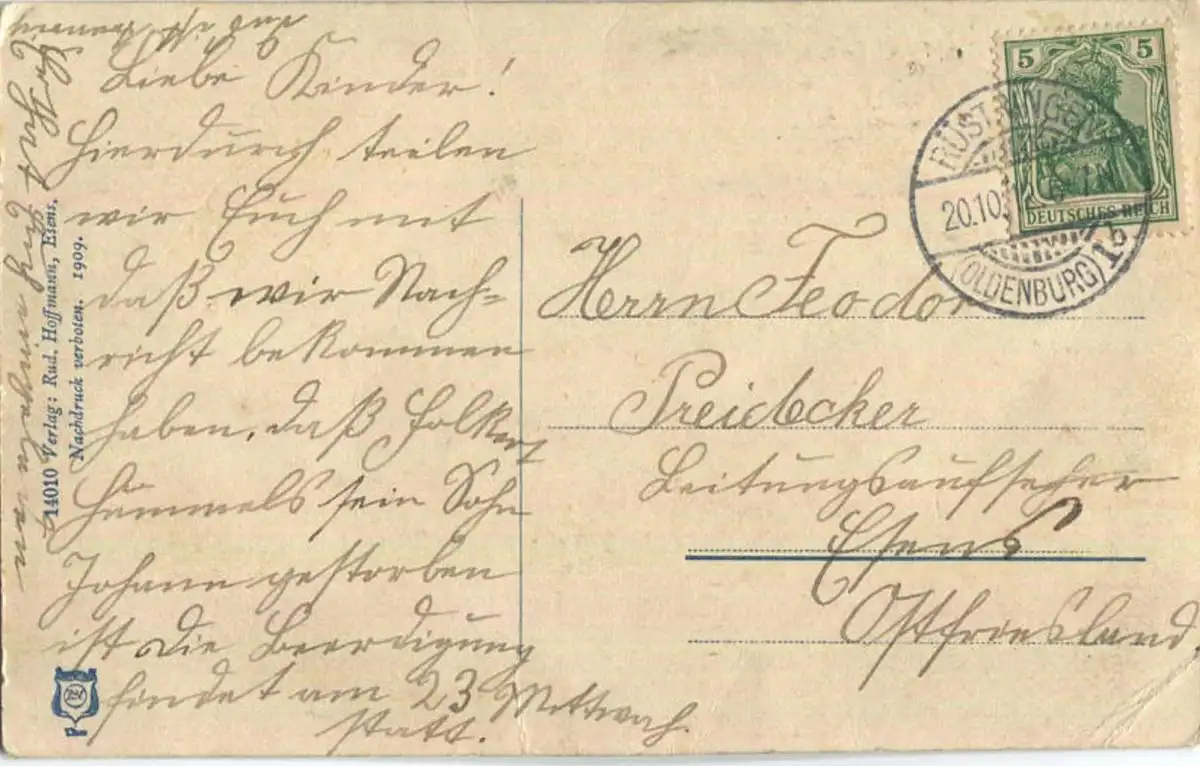 Liebe Kinder!
Hierdurch teilen
wir Euch mit
daß wir Nach-
richt bekommen
haben, daß Folkert
Hummels sein Sohn
Johann gestorben
ist die Beerdigung
findet am 23 Mittwoch
statt.
14010 Verlag: Rud. Hoffmann, Esens.
Nachdruck verboten. 1909.
5 5
DEUTSCHES REICH
RÜSTRINGEN
20.10.
(OLDENBURG) 1b
Herrn Feodor
Preidecker
Leitungsaufseher
Esens
Ostfriesland